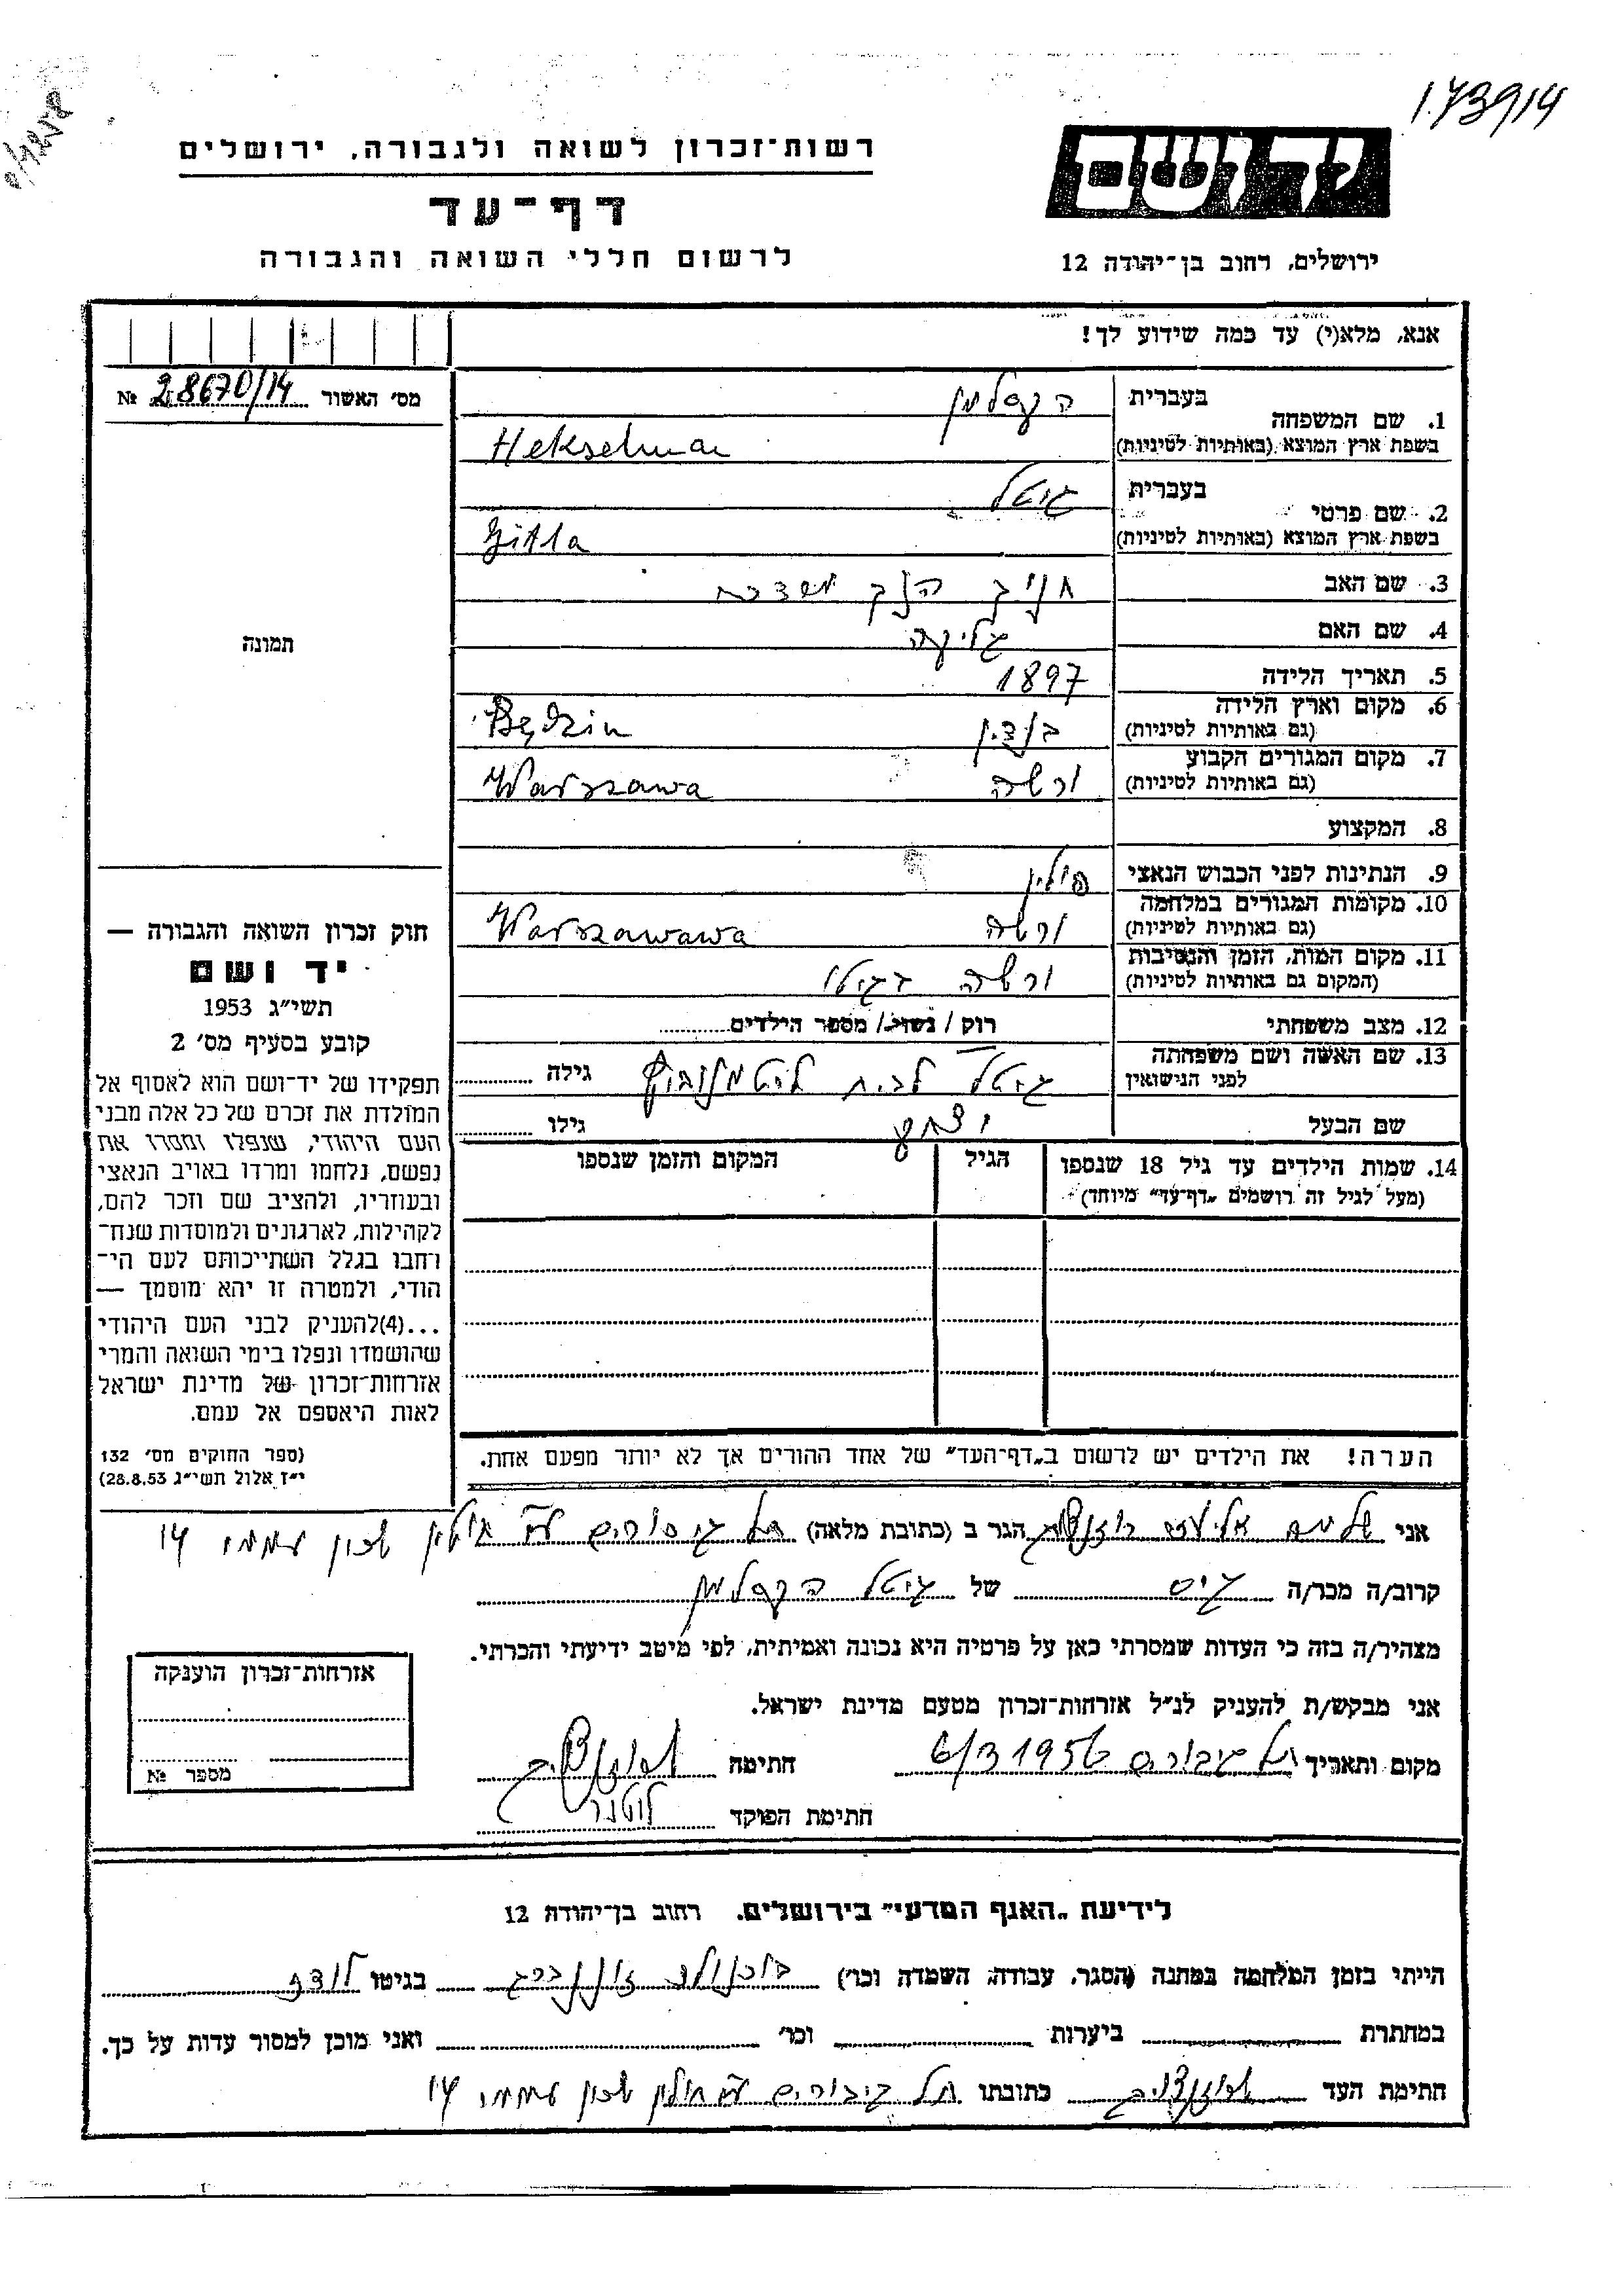 1.73914
יד ושם
רשות־זכרון לשואה ולגבורה, ירושלים
דף־עד
לרשום חללי השואה והגבורה
ירושלים, רחוב בן־יהודה 12
אנא, מלא(י) עד כמה שידוע לך!
מס׳ האשור 28670/14 №
1. שם המשפחה
בעברית הקסלמן
בשפת ארץ המוצא (באותיות לטיניות) Hekselman
2. שם פרטי
בעברית גיטל
בשפת ארץ המוצא (באותיות לטיניות) Gitla
3. שם האב
4. שם האם
5. תאריך הלידה 1897
6. מקום וארץ הלידה
(גם באותיות לטיניות) בנדין Będzin
7. מקום המגורים הקבוע
(גם באותיות לטיניות) ורשה Warszawa
8. המקצוע
9. הנתינות לפני הכבוש הנאצי פולין
10. מקומות המגורים במלחמה
(גם באותיות לטיניות) ורשה Warszawawa
11. מקום המות, הזמן והנסיבות
(המקום גם באותיות לטיניות) ורשה בגיטו
12. מצב משפחתי רוק / נשוי / מספר הילדים
13. שם האשה ושם משפחתה
לפני הנישואין גיטל לבית גילה
שם הבעל גילו
14. שמות הילדים עד גיל 18 שנספו
(מעל לגיל זה רושמים „דף־עד״ מיוחד)
הגיל
המקום והזמן שנספו
הערה! את הילדים יש לרשום ב„דף־העד״ של אחד ההורים אך לא יותר מפעם אחת.
תמונה
חוק זכרון השואה והגבורה —
יד ושם
תשי״ג 1953
קובע בסעיף מס׳ 2
תפקידו של יד־ושם הוא לאסוף אל
המולדת את זכרם של כל אלה מבני
העם היהודי, שנפלו ומסרו את
נפשם, נלחמו ומרדו באויב הנאצי
ובעוזריו, ולהציב שם וזכר להם,
לקהילות, לארגונים ולמוסדות שנח־
רחבו בגלל השתייכותם לעם הי־
הודי, ולמטרה זו יהא מוסמך —
...(4)להעניק לבני העם היהודי
שהושמדו ונפלו בימי השואה והמרי
אזרחות־זכרון של מדינת ישראל
לאות היאספם אל עמם.
(ספר החוקים מס׳ 132
י״ז אלול תשי״ג 28.8.53)
אני הגר ב (כתובת מלאה) תל גיבורים שכון עממי 14
קרוב/ה מכר/ה גיס של גיטל הקסלמן
מצהיר/ה בזה כי העדות שמסרתי כאן על פרטיה היא נכונה ואמיתית, לפי מיטב ידיעתי והכרתי.
אני מבקש/ת להעניק לנ״ל אזרחות־זכרון מטעם מדינת ישראל.
מקום ותאריך תל גיבורים 6/3 1956 חתימה
חתימת הפוקד
אזרחות־זכרון הוענקה
מספר №
לידיעת „האגף המדעי״ בירושלים, רחוב בן־יהודה 12
הייתי בזמן המלחמה במחנה (הסגר, עבודה, השמדה וכר׳) בגיטו לודז
במחתרת ביערות וכר׳ ואני מוכן למסור עדות על כך.
חתימת העד כתובתו תל גיבורים ע״י חולון שכון עממי 14